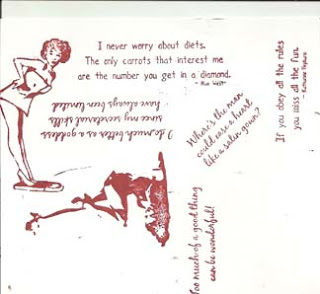 I never worry about diets.
The only carrots that interest me
are the number you get in a diamond.
- Mae West
I do much better as a goddess
since my secretarial skills
have always been limited.
Where's the man
could ease a heart
like a satin gown?
If you obey all the rules
you miss all the fun.
- Katharine Hepburn
Too much of a good thing
can be wonderful!